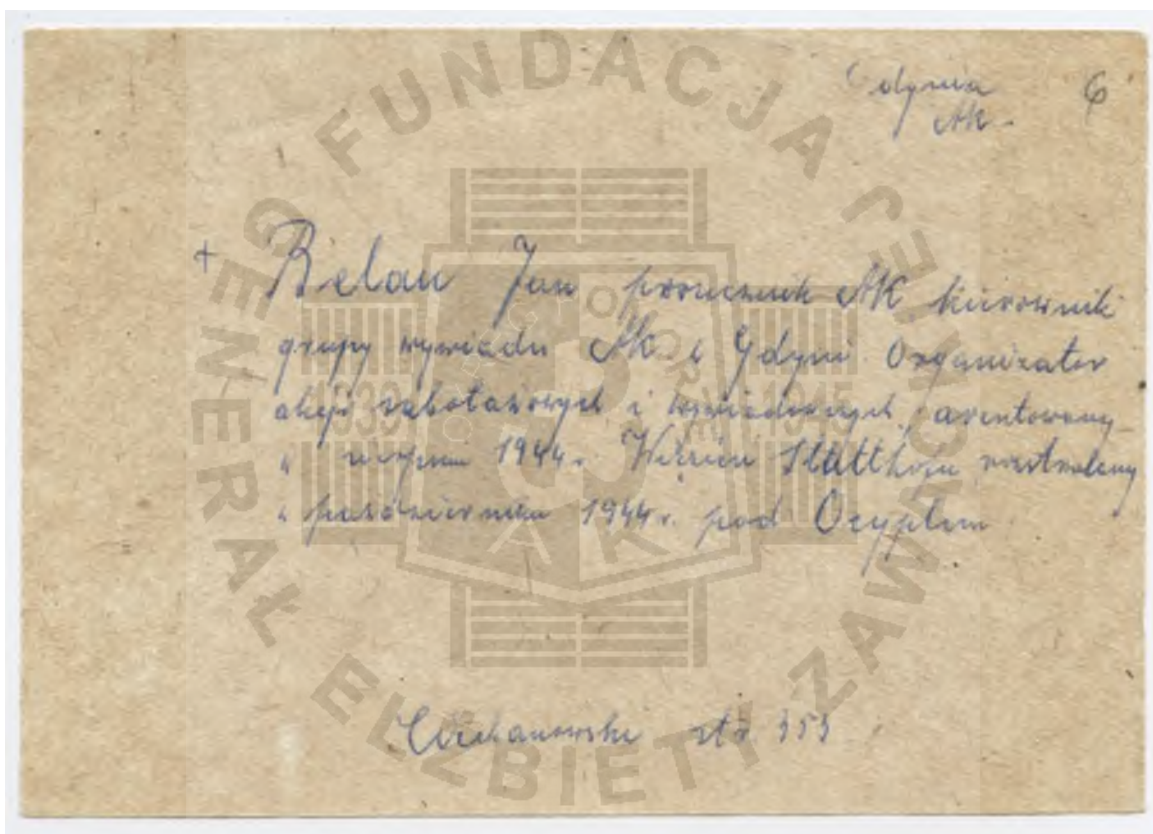 Gdynia 6
AK.
+ Belau Jan porucznik AK kierownik
grupy wywiadu AK w Gdyni Organizator
akcji sabotażowych i wywiadowczych, aresztowany
w sierpniu 1944. Więzień Stutthofu rozstrzelany
w październiku 1944 r. pod Ocyplem
Ciechanowski str. 353
FUNDACJA GENERAŁ ELŻBIETY ZAWACKIEJ
1939 1945
AK